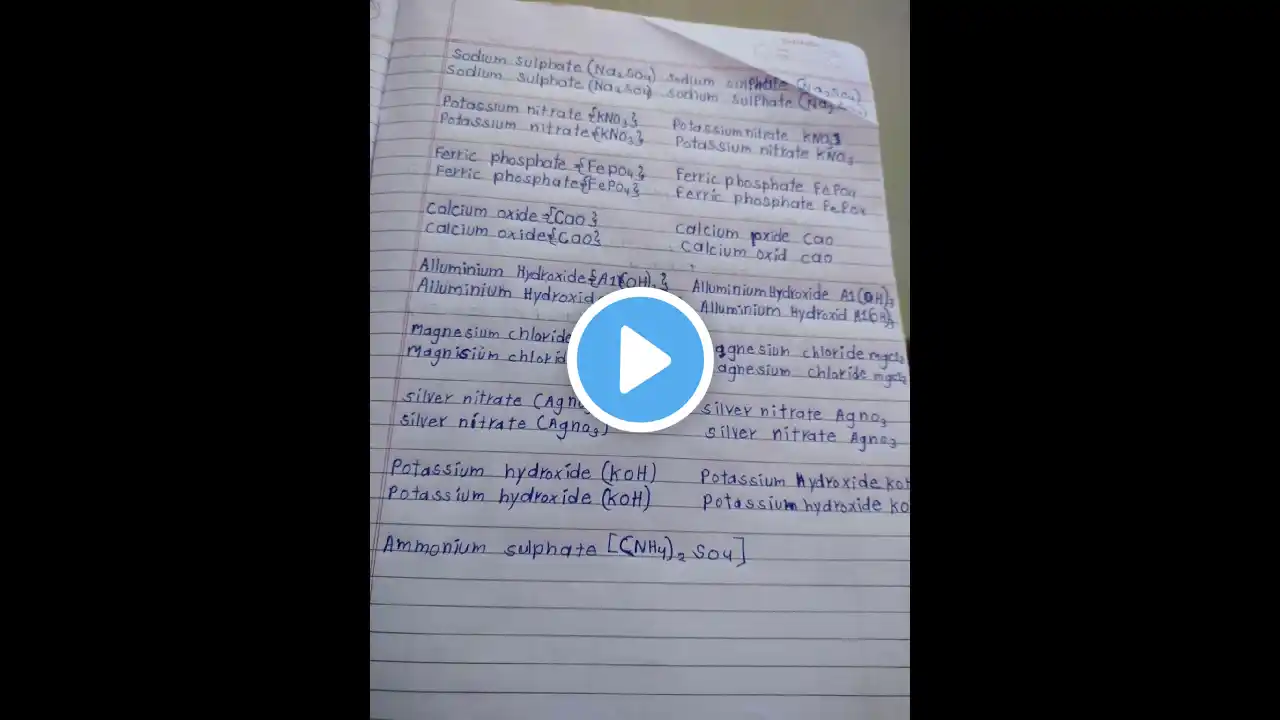 Sodium sulphate (Na₂SO₄) sodium sulphate (Na₂SO₄)
Sodium sulphate (Na₂SO₄) sodium sulphate (Na₂
Potassium nitrate {KNO₃} Potassium nitrate KNO₃
Potassium nitrate {KNO₃} Potassium nitrate KNO₃
Ferric phosphate {FePO₄} Ferric phosphate FePO₄
Ferric phosphate {FePO₄} Ferric phosphate FePO₄
Calcium oxide {CaO} calcium oxide cao
Calcium oxide {CaO} calcium oxid cao
Alluminium Hydroxide {A1(OH)₃} Alluminium Hydroxide A1(OH)₃
Alluminium Hydroxid Alluminium Hydroxid A1(OH)₃
Magnesium chloride agnesium chloride mgcl₂
Magnisium chlorid agnesium chloride mgcl₂
silver nitrate (Agn silver nitrate Agno₃
silver nitrate (Agno₃) silver nitrate Agno₃
Potassium hydroxide (KOH) Potassium Hydroxide KOH
Potassium hydroxide (KOH) Potassium hydroxide KO
Ammonium sulphate [(NH₄)₂ SO₄]